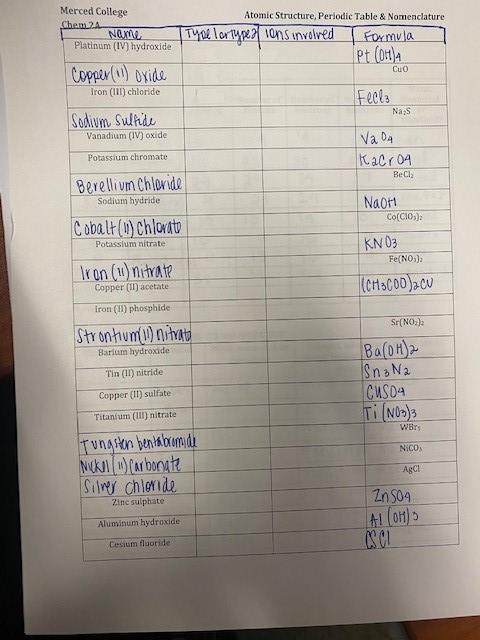 Merced College
Atomic Structure, Periodic Table & Nomenclature
Chem 2A
Name Type 1 or type 2 ions involved Formula
Platinum (IV) hydroxide Pt (OH)4
Copper(II) Oxide CuO
Iron (III) chloride FeCl3
Sodium Sulfide Na₂S
Vanadium (IV) oxide Va O4
Potassium chromate K2CrO4
Berellium Chloride BeCl₂
Sodium hydride NaOH
Cobalt(II) Chlorate Co(ClO₃)₂
Potassium nitrate KNO3
Iron (II) nitrate Fe(NO₃)₂
Copper (II) acetate (CH3COO)2CU
Iron (II) phosphide
Strontium(II) nitrat Sr(NO₂)₂
Barium hydroxide Ba(OH)2
Tin (II) nitride Sn3N2
Copper (II) sulfate CuSO4
Titanium (III) nitrate Ti (NO3)3
Tungsten pentabromide WBr₅
Nickel (II) Carbonate NiCO₃
Silver chloride AgCl
Zinc sulphate ZnSO4
Aluminum hydroxide Al (OH)3
Cesium fluoride CSCl